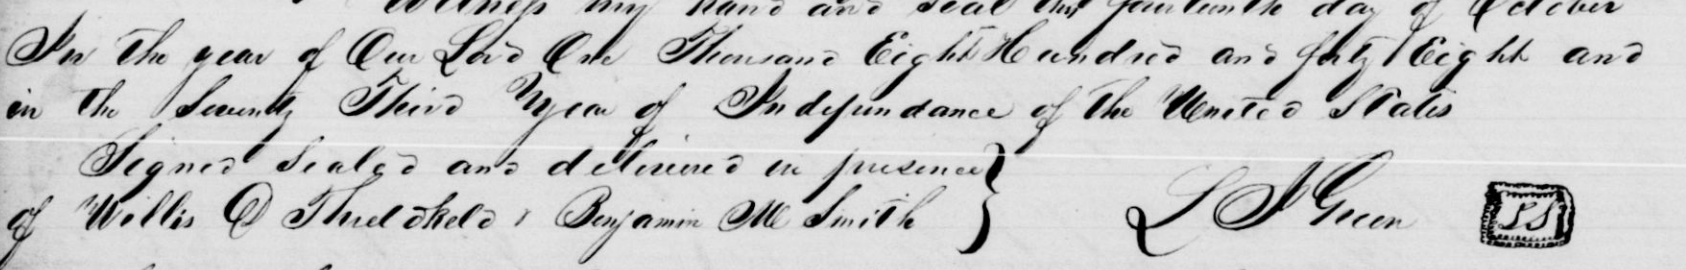 Witness my hand and seal this fourteenth day of October
In the year of Our Lord One Thousand Eight Hundred and forty Eight and
in the Seventy Third Year of Independance of the United States
Signed Sealed and delivered in presence
of Willis D Threldkeld & Benjamin M Smith } L J Green LS